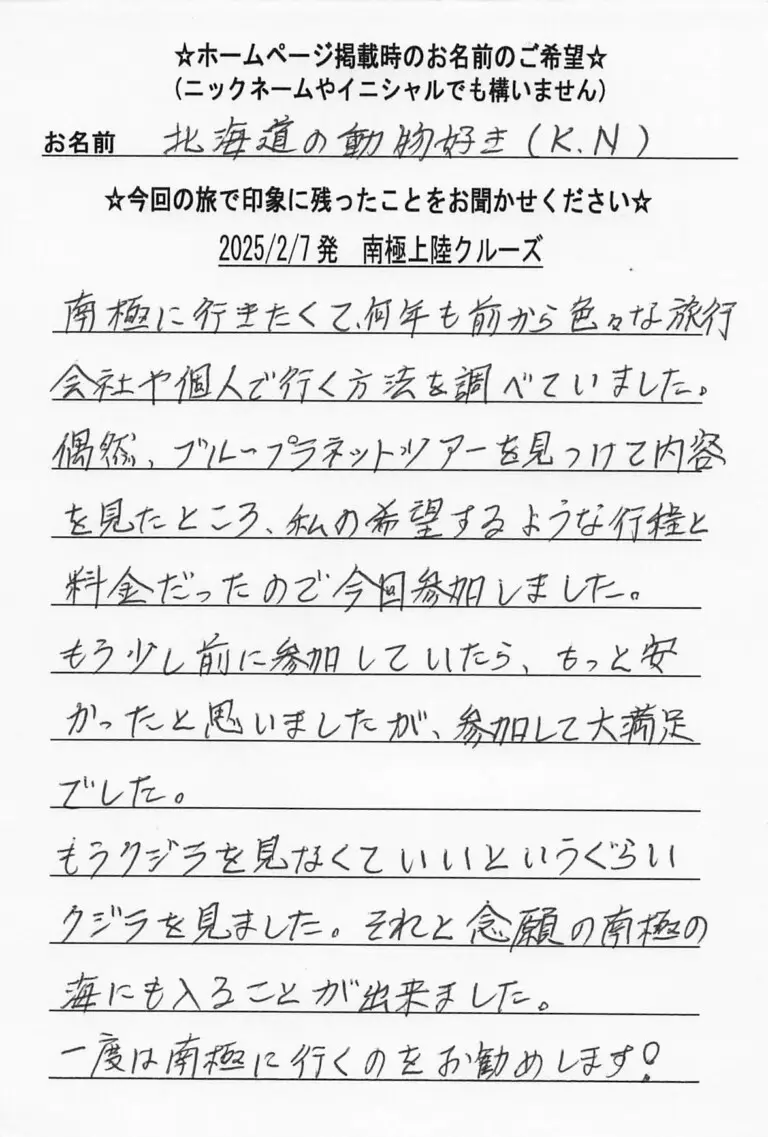 ☆ホームページ掲載時のお名前のご希望☆
(ニックネームやイニシャルでも構いません)
お名前 北海道の動物好き(K.N)
☆今回の旅で印象に残ったことをお聞かせください☆
2025/2/7発 南極上陸クルーズ
南極に行きたくて、何年も前から色々な旅行
会社や個人で行く方法を調べていました。
偶然、ブループラネットツアーを見つけて内容
を見たところ、私の希望するような行程と
料金だったので今回参加しました。
もう少し前に参加していたら、もっと安
かったと思いましたが、参加して大満足
でした。
もうクジラを見なくていいというぐらい
クジラを見ました。それと念願の南極の
海にも入ることが出来ました。
一度は南極に行くのをお勧めします!